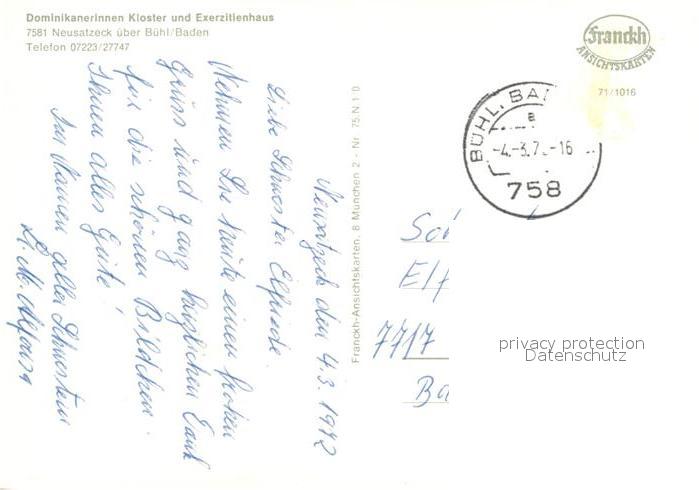 Dominikanerinnen Kloster und Exerzitienhaus
7581 Neusatzeck über Bühl/Baden
Telefon 07223/27747
Franckh
ANSICHTSKARTEN
71/1016
BÜHL, BA
a
-4.-3.7 -16
758
Franckh-Ansichtskarten, 8 München 2 - Nr. 75 N 1 0
Neusatzeck den 4.3.1972
Liebe Schwester Elfriede.
Nehmen Sie heute einen frohen
Gruss und ganz herzlichen Dank
für die schönen Bildchen.
Ihnen alles Gute!
Im Namen aller Schwestern
Sr. M. Alfonsa
Sch
Elf
7717
Ba
privacy protection
Datenschutz